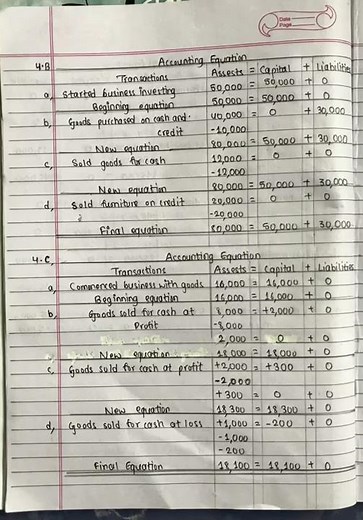 Date
Page
4.B Accounting Equation
Transactions Assests = Capital + Liabilities
a, Started business investing 50,000 = 50,000 + 0
Beginning equation 50,000 = 50,000 + 0
b, Goods purchased on cash and 40,000 = 0 + 30,000
credit -10,000
New equation 80,000 = 50,000 + 30,000
c, Sold goods for cash 12,000 = 0 + 0
-12,000
New equation 80,000 = 50,000 + 30,000
d, Sold furniture on credit 20,000 = 0 + 0
-20,000
Final equation 80,000 = 50,000 + 30,000
4.C, Accounting Equation
Transactions Assests = Capital + Liabilities
a, Commenced business with goods 16,000 = 16,000 + 0
Beginning equation 16,000 = 16,000 + 0
b, Goods sold for cash at 8,000 = +2,000 + 0
Profit -8,000
2,000 = 0 + 0
New equation 18,000 = 18,000 + 0
c, Goods sold for cash at profit +2,000 = +300 + 0
-2,000
+300 = 0 + 0
New equation 18,300 = 18,300 + 0
d, Goods sold for cash at loss +1,000 = -200 + 0
-1,000
-200
Final Equation 18,100 = 18,100 + 0